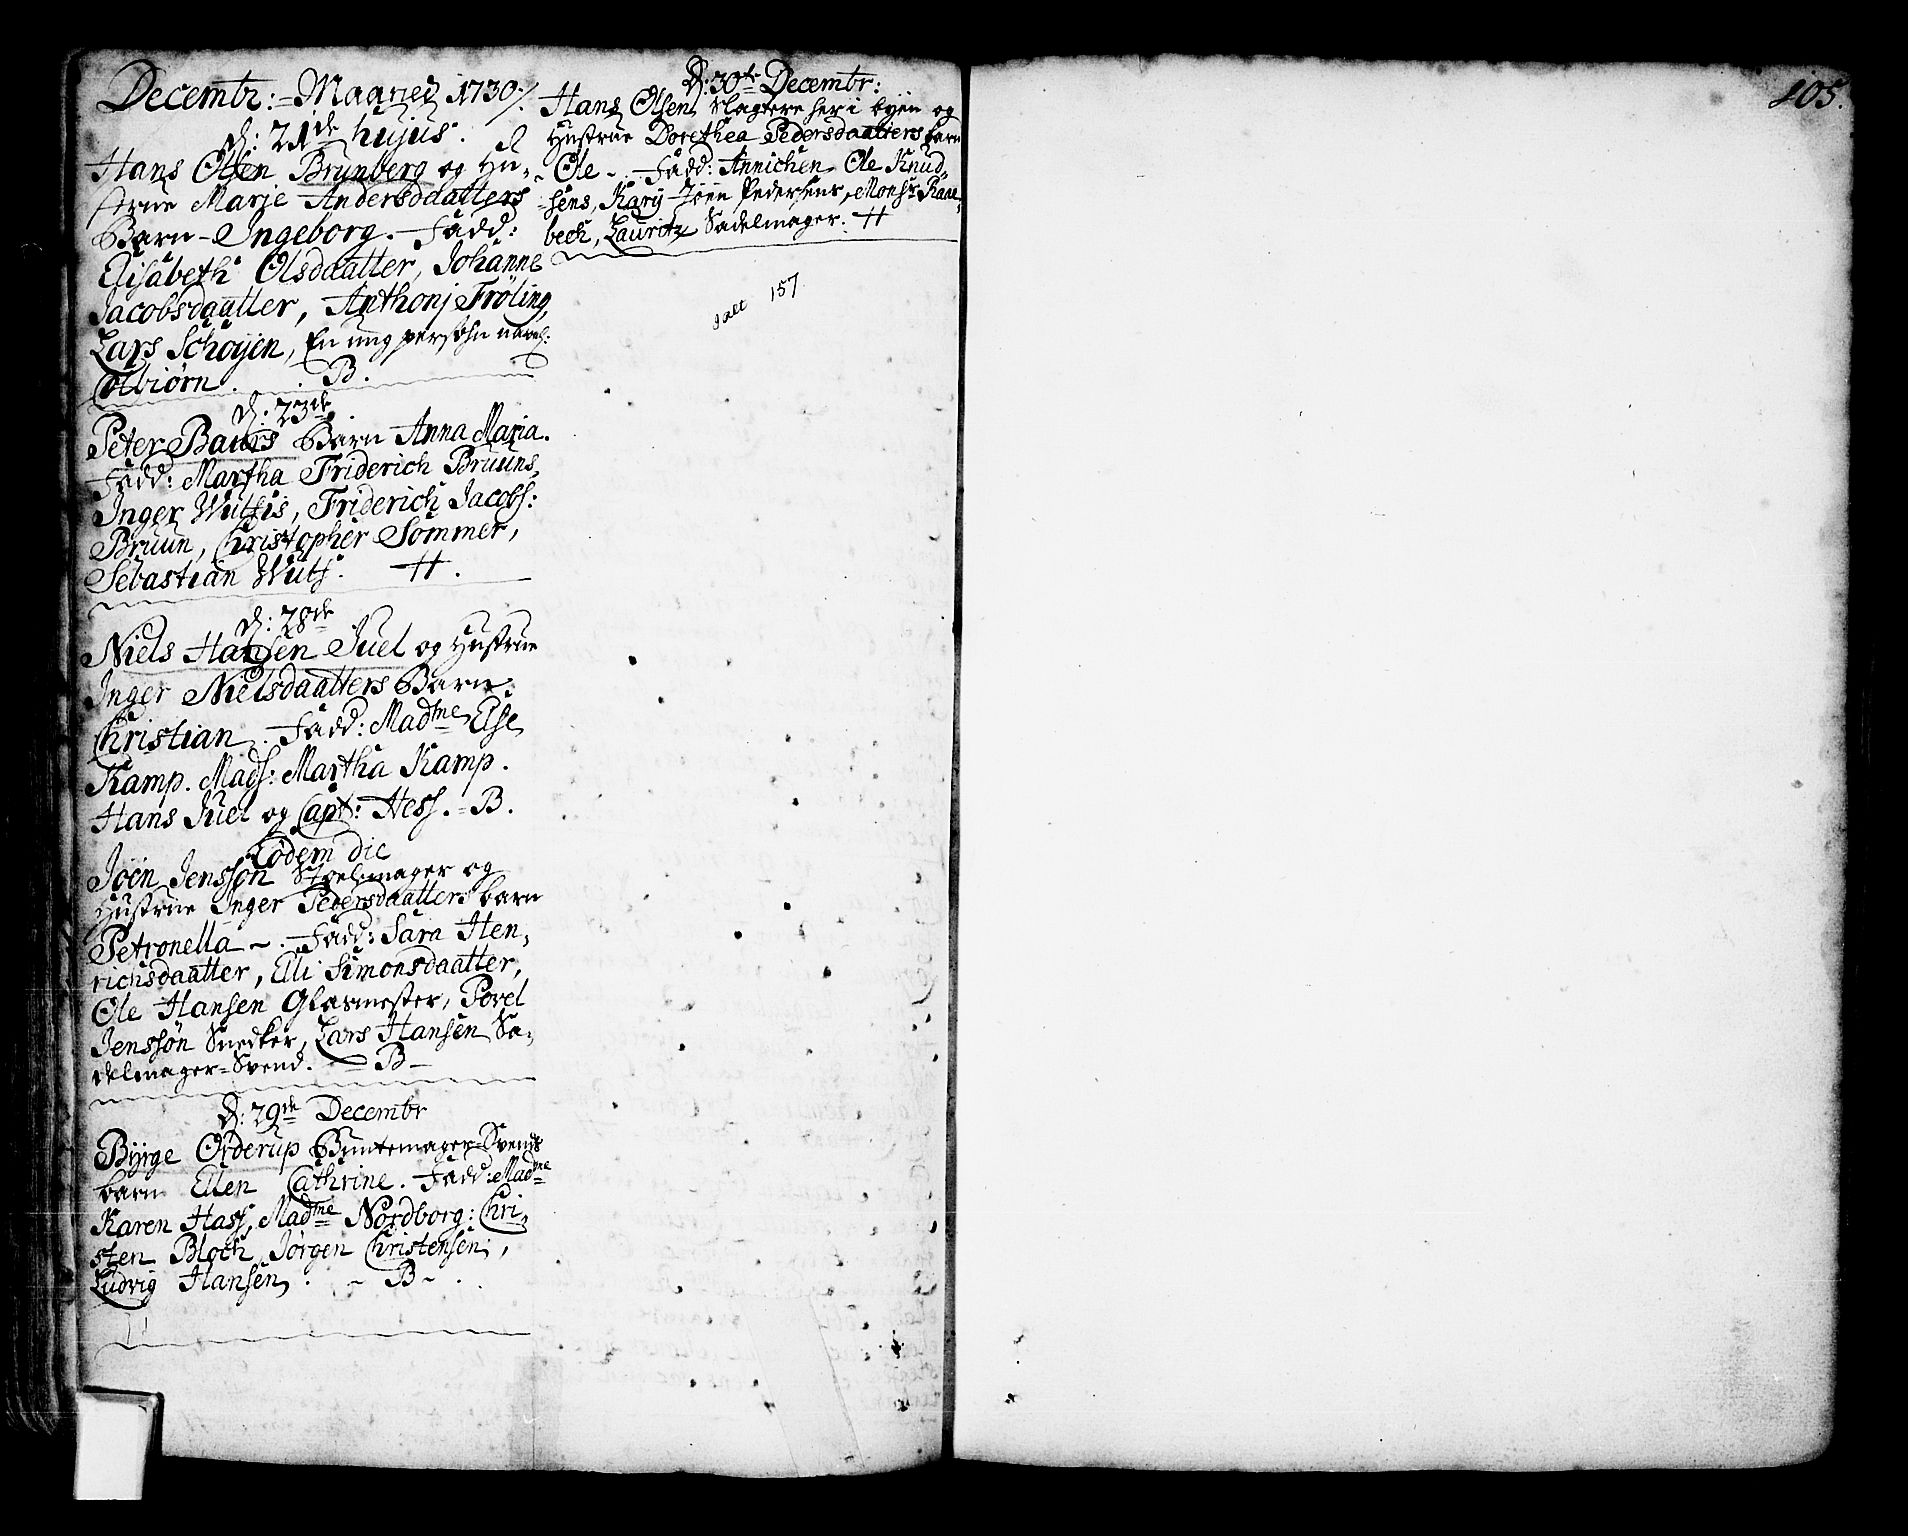 Decembr: = Maaned 1730/.
d: 21de hujus.
Hans Olsen Brunberg og Hu-
strue Marie Andersdaatters
Barn - Ingeborg. Fadd:
Elisabeth Olsdaatter, Johanne
Jacobsdaatter, Anthonj Fröling,
Lars Schöyen, En ung persohn navnl:
Colbiörn. . B.
d: 23de
Peter Baurs Barn Anna Maria.
Fadd: Martha Friderich Bruuns,
Inger Wulfis, Friderich Jacobs:
Bruun, Christopher Sommer,
Sebastian Wulf. H.
d: 28de
Niels Hansen Juel og Hustrue
Inger Nielsdaatters Barn:
Christian. Fadd: Madme Else
Kamp. Mads: Martha Kamp.
Hans Juel og Capt: Hess. = B.
Eodem die
Joen Jenssön Stoelmager og
Hustrue Inger Pedersdaatters barn
Petronella ~. Fadd: Sara Hen-
richsdaatter, Elli Simonsdaatter,
Ole Hansen Glasmester, Povel
Jenssön Snedker, Lars Hansen Sa-
delmager=Svend. — B —
D: 29de Decembr
Byrge Orderup Buntemager=Svends
barn Ellen Cathrine. Fadd: Madme
Karen Hass, Madme Nordborg: Chri-
sten Bloch, Jörgen Christensen,
Ludvig Hansen. ~ B ~.
D: 30te Decembr:
Hans Olsen Slagtere her i byen og
Hustrue Dorethea Pedersdaatters barn
- Ole -. Fadd: Annichen Ole Knud-
sens, Kary Joen Pedersens, Monsr Rane-
beck, Lauritz Sadelmager. H
Jalt 157
105.